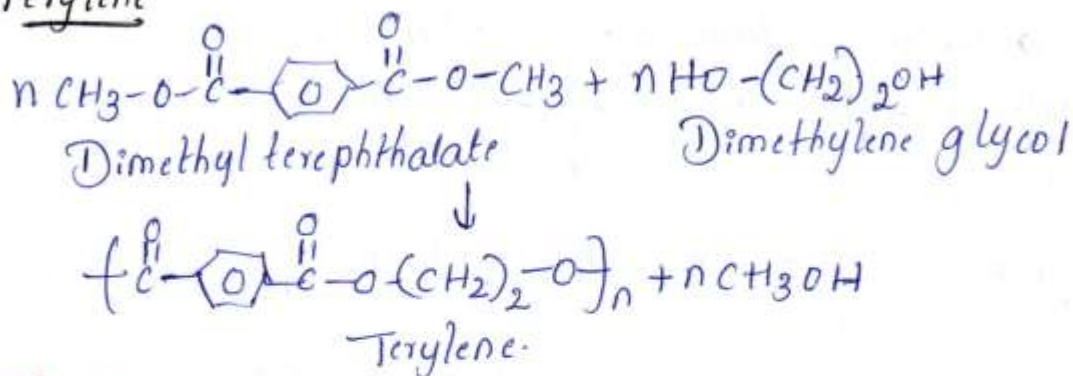 Terylene
O O
n CH3-O-C-⌬-C-O-CH3 + n HO-(CH2)2OH
Dimethyl terephthalate Dimethylene glycol
↓
O O
[C-⌬-C-O-(CH2)2-O]n + nCH3OH
Terylene.